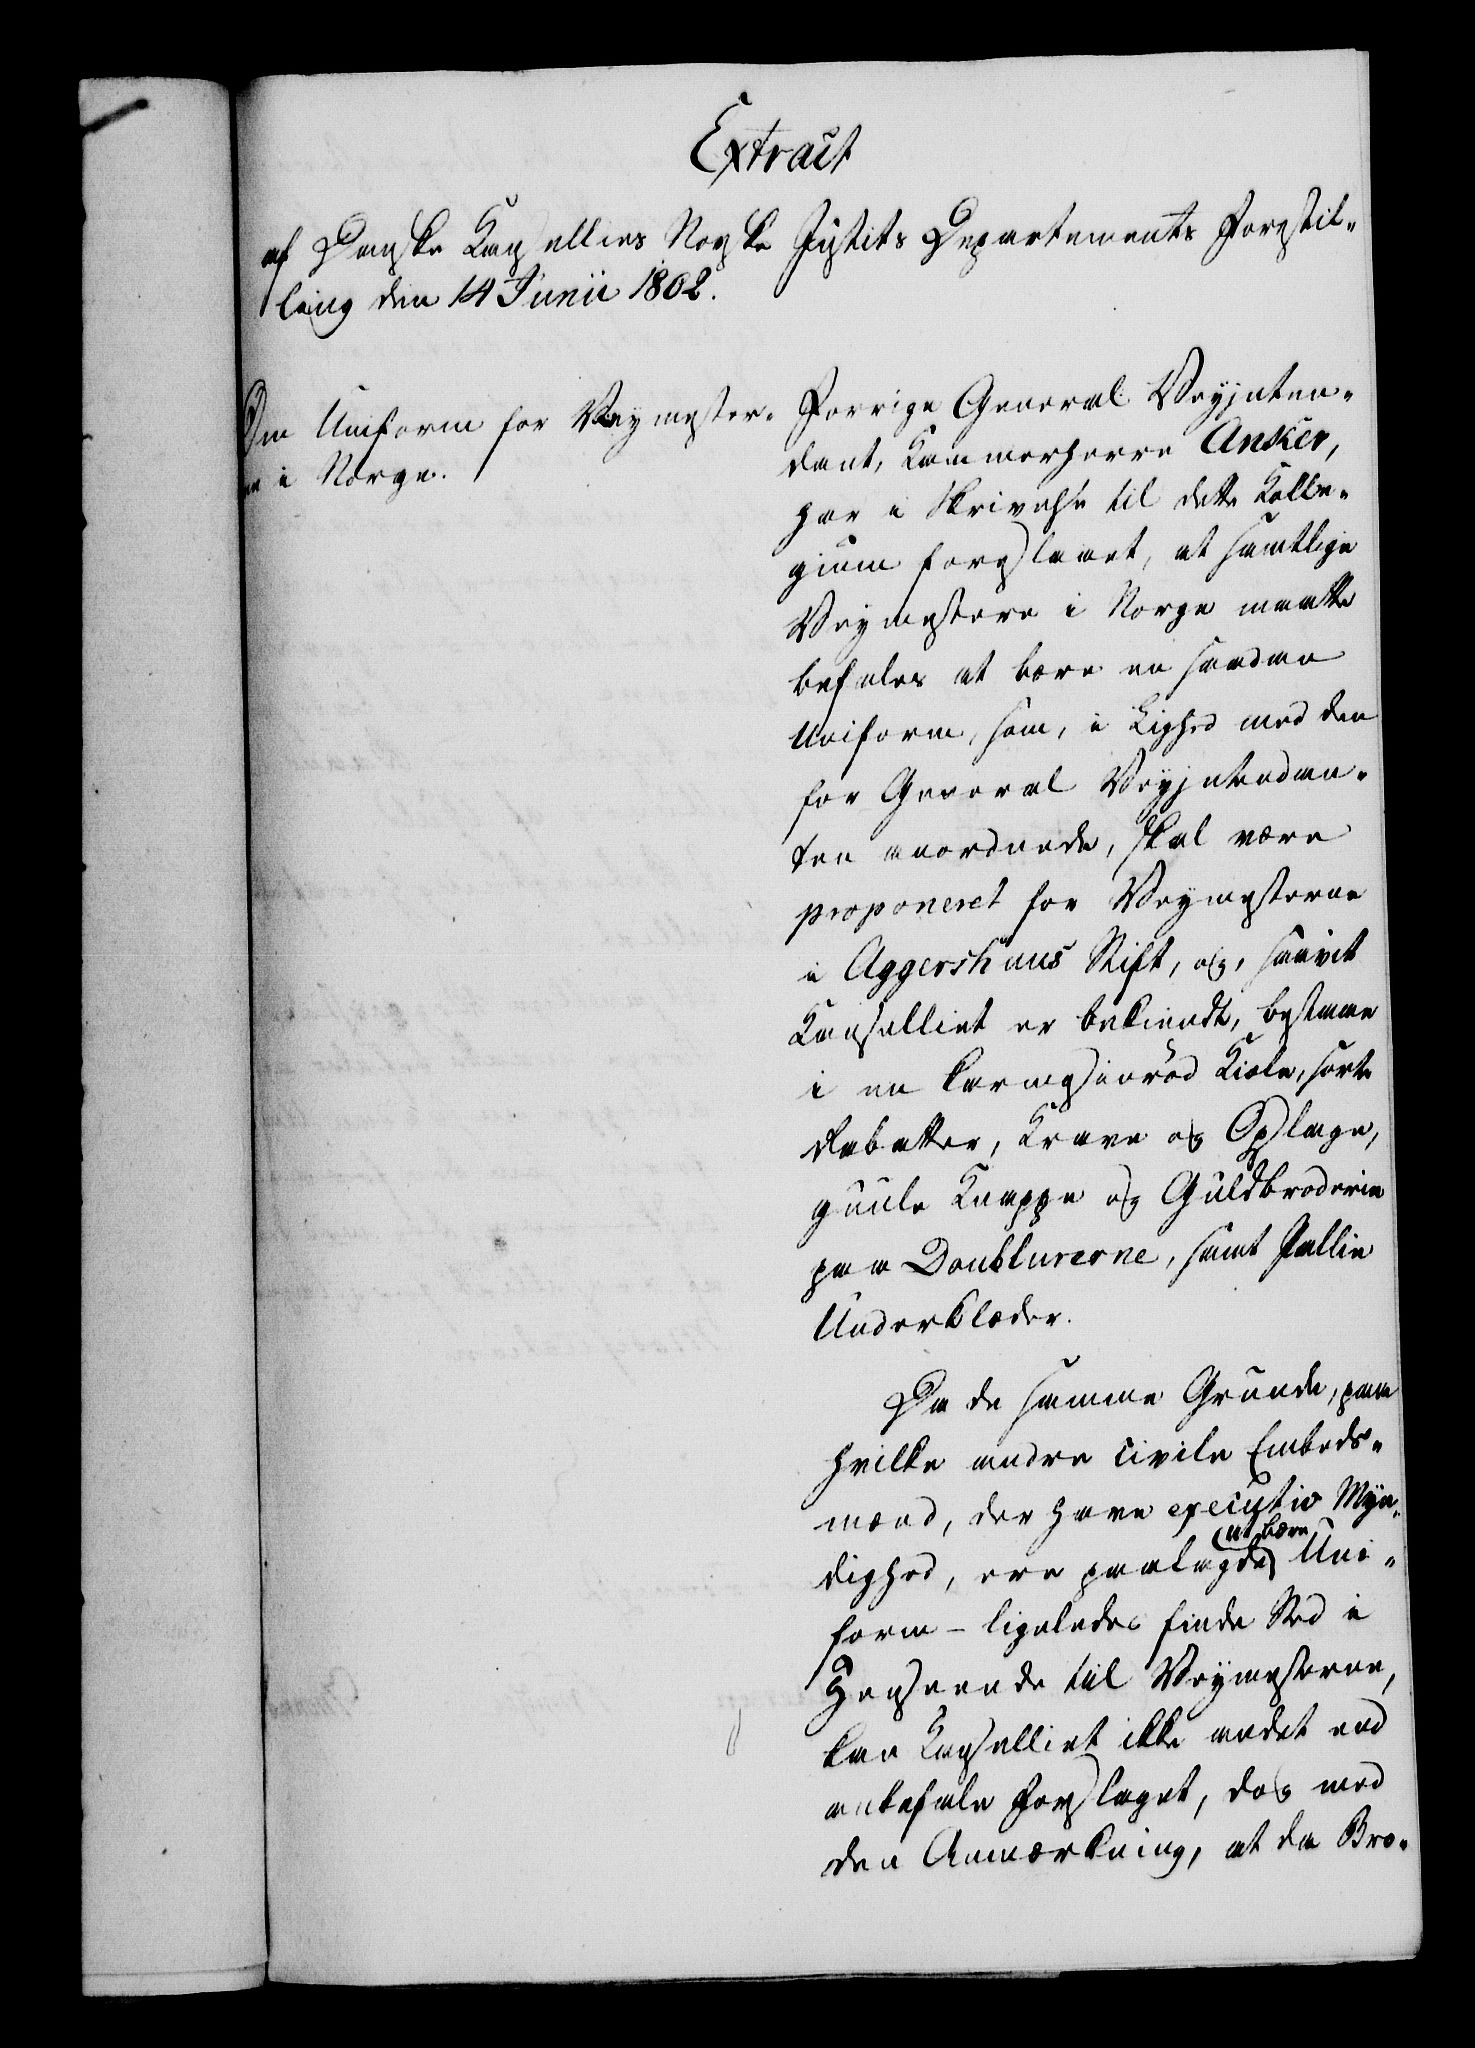 Extract
af Danske Kancellies Norske Justits Departements Forestil-
ling den 14 Junii 1802.
Om Uniform for Veymester-
ne i Norge.
Forrige General Veyjnten-
dant, Kammerherre Anker,
har i Skrivelse til dette Kolle-
gium foreslaaet, at samtlige
Veymestere i Norge maatte
befales at bære en saadan
Uniform, som, i Lighed med den
for General Veyjntendan-
ten anordnede, skal være
proponeret for Veymesterne
i Aggershuus Stift, og, saavit
Kancelliet er bekiendt, bestaae
i en karmesinrød Kiole, sorte
Rabatter, Krave og Opslage,
guule Knappe og Guldbroderie
paa Doublurerne, samt Paillie
Underklæder.
Da de samme Grunde, paa
hvilke andre civile Embeds-
mænd, der have executiv Myn-
dighed, ere paalagde at bære Uni-
form - ligeledes finde Sted i
Henseende til Veymesterne,
kan Kancelliet ikke andet end
anbefale Forslaget, dog med
den Anmærkning, at da Bro-